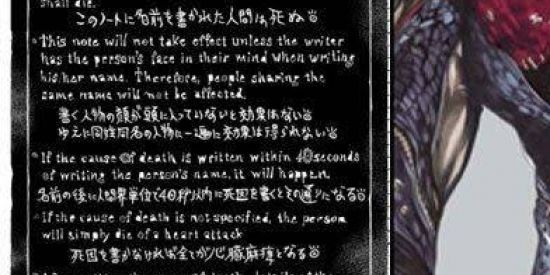 shall die.
このノートに名前を書かれた人間は死ぬ
This note will not take effect unless the writer
has the person's face in their mind when writing
his/her name. Therefore, people sharing the
same name will not be affected.
書く人物の顔が頭に入っていないと効果はない
ゆえに同姓同名の人物に一遍に効果は得られない
If the cause of death is written within 40seconds
of writing the person's name, it will happen.
名前の後に人間界単位で40秒以内に死因を書くとその通りになる
If the cause of death is not specified, the person
will simply die of a heart attack
死因を書かなければ全てが心臓麻痺となる